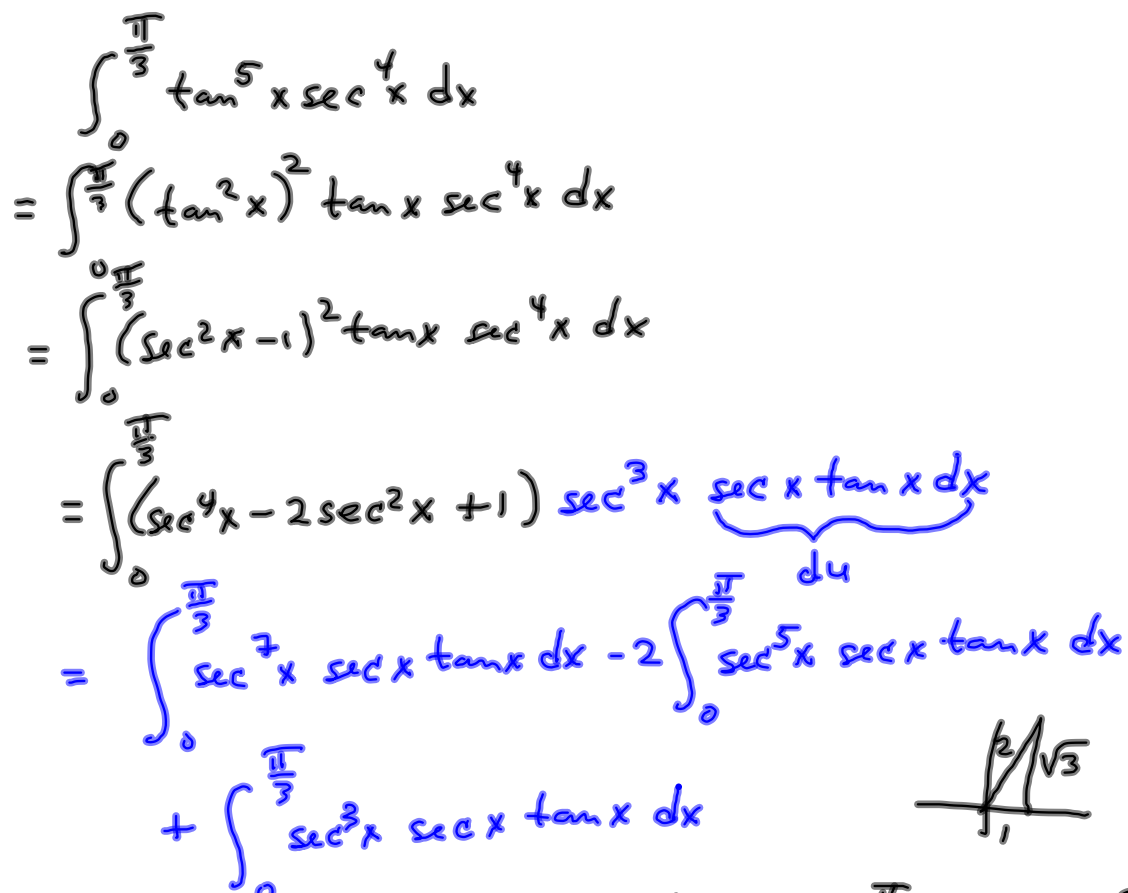 ∫₀^{π/3} tan⁵ x sec⁴ x dx
= ∫₀^{π/3} (tan² x)² tan x sec⁴ x dx
= ∫₀^{π/3} (sec² x − 1)² tan x sec⁴ x dx
= ∫₀^{π/3} (sec⁴ x − 2 sec² x + 1) sec³ x sec x tan x dx
du
= ∫₀^{π/3} sec⁷ x sec x tan x dx − 2 ∫₀^{π/3} sec⁵ x sec x tan x dx
+ ∫₀^{π/3} sec³ x sec x tan x dx
2 √3
1